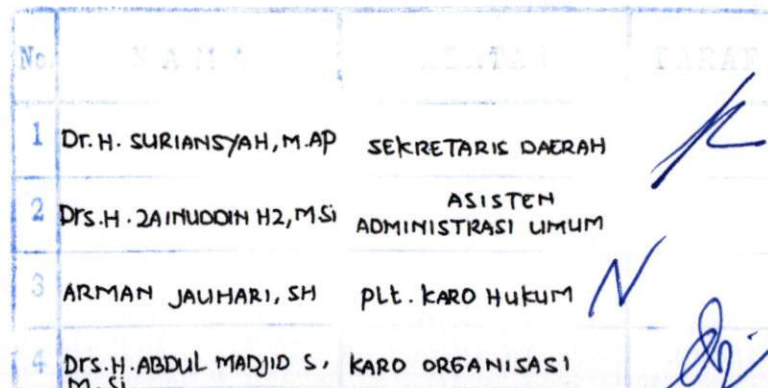 No. NAMA JABATAN PARAF
1 Dr. H. SURIANSYAH, M.AP SEKRETARIS DAERAH
2 Drs. H. ZAINUDDIN HZ, MSi ASISTEN
ADMINISTRASI UMUM
3 ARMAN JAUHARI, SH Plt. KARO HUKUM
4 Drs. H. ABDUL MADJID S, KARO ORGANISASI
M.Si